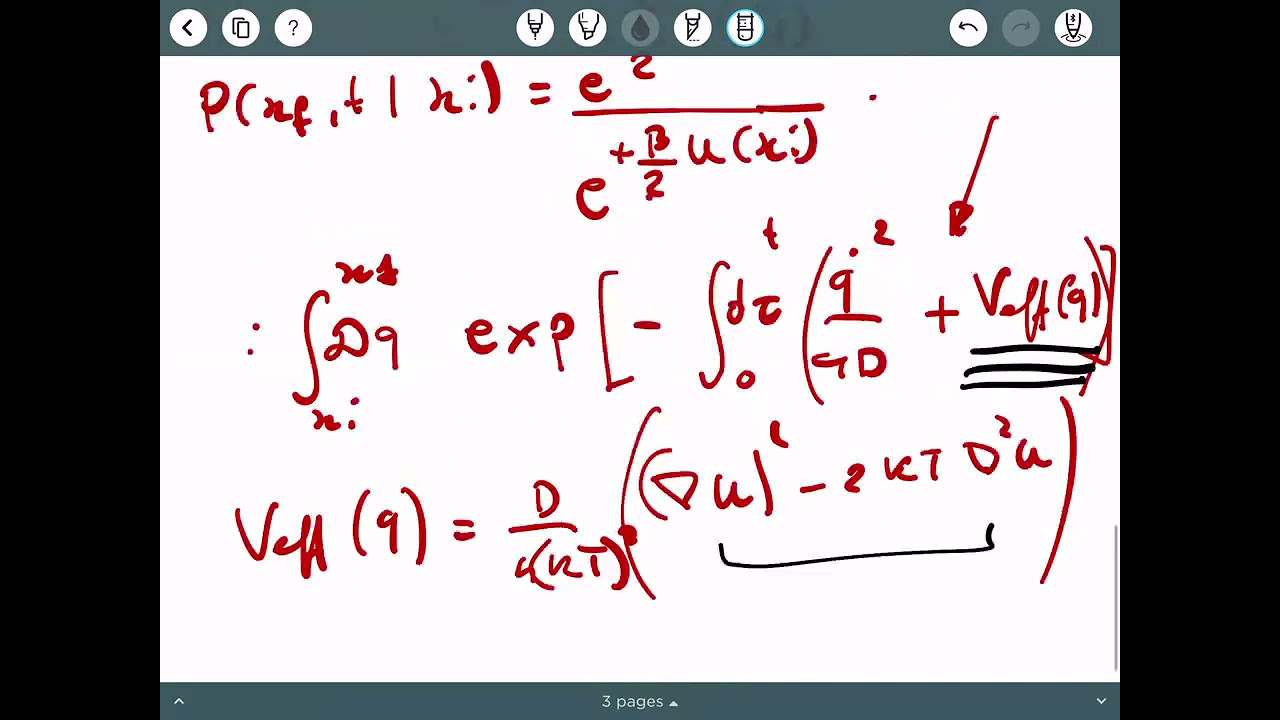 P(xf, t | xi) = e^2 / e^{+β/2 u(xi)} .
: ∫_{xi}^{xf} Dq exp [ - ∫_0^t dτ ( q̇^2 / 4D + Veff(q) ) ]
Veff(q) = D / 4(kT)^2 ( (∇u)^2 - 2 kT ∇^2 u )
3 pages